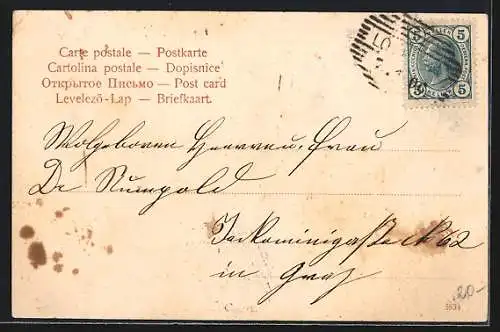 Carte postale — Postkarte
Cartolina postale — Dopisnice
Открытое Письмо — Post card
Levelező-Lap — Briefkaart.
5 5
5 5
Wolgeboren Herren, Frau
Dr Rumpold
Jakominigasse № 62
in Graz
20-